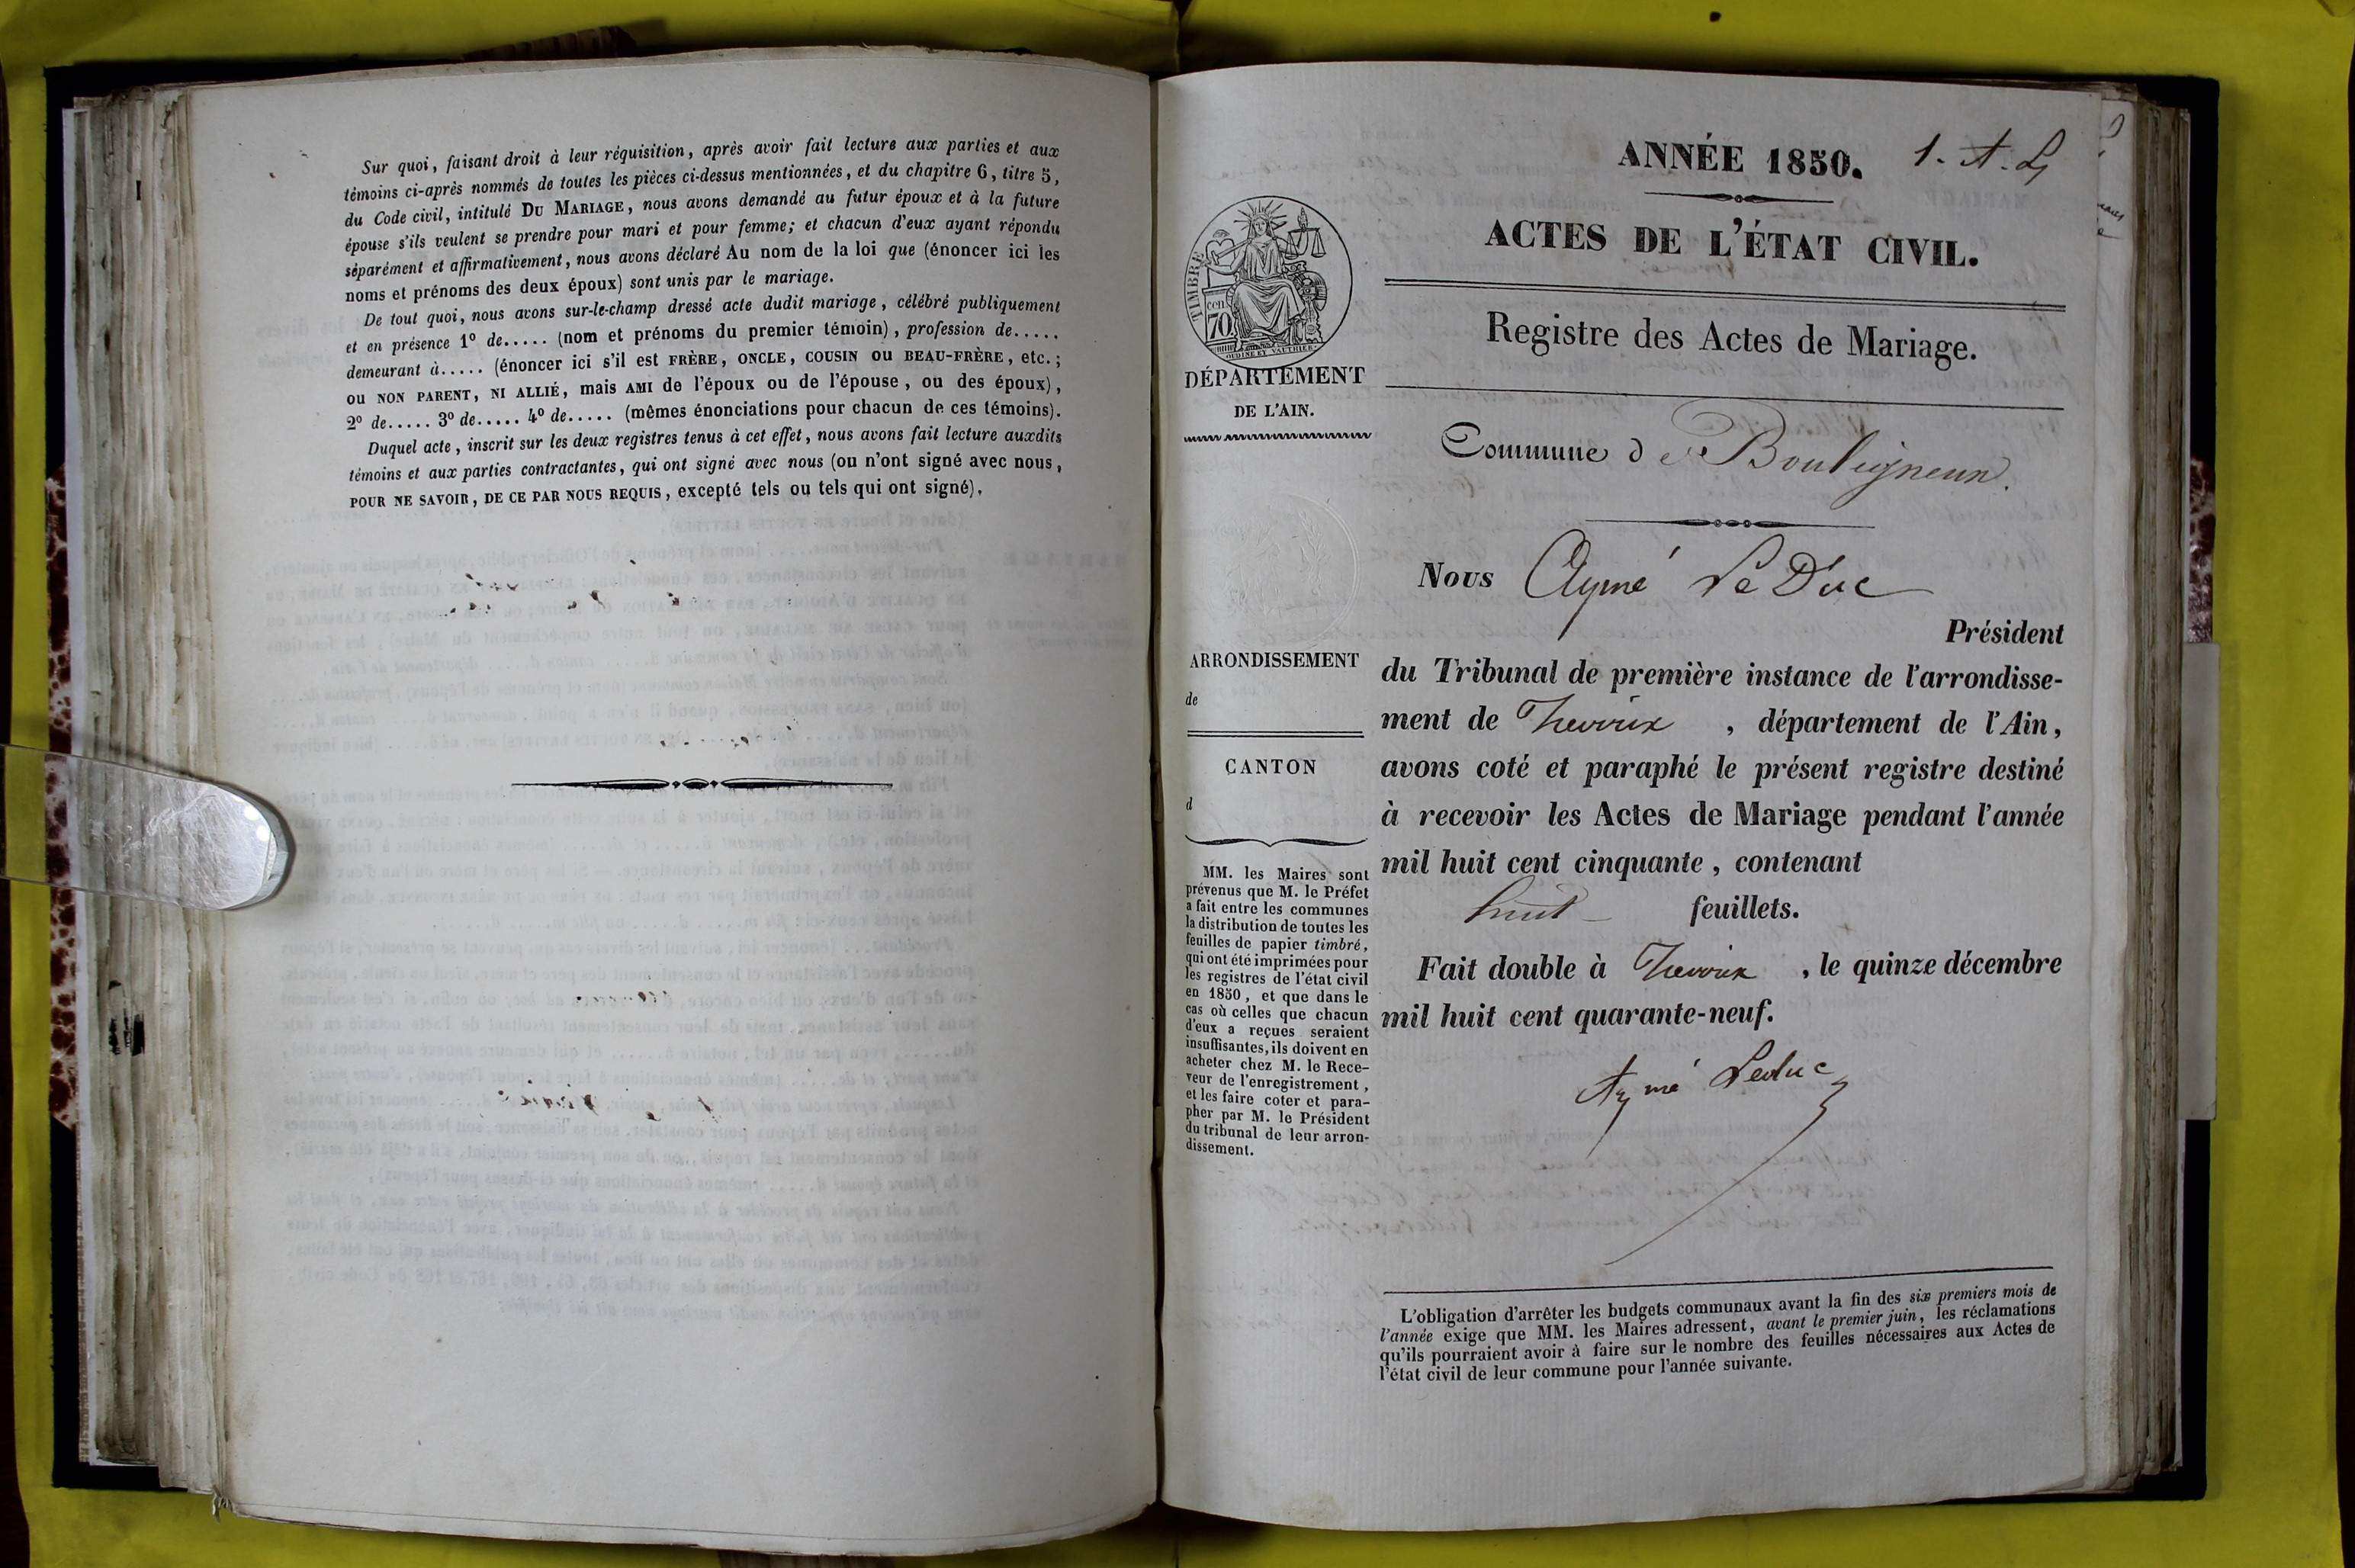 Sur quoi, faisant droit à leur réquisition, après avoir fait lecture aux parties et aux
témoins ci-après nommés de toutes les pièces ci-dessus mentionnées, et du chapitre 6, titre 5,
du Code civil, intitulé DU MARIAGE, nous avons demandé au futur époux et à la future
épouse s'ils veulent se prendre pour mari et pour femme; et chacun d'eux ayant répondu
séparément et affirmativement, nous avons déclaré Au nom de la loi que (énoncer ici les
noms et prénoms des deux époux) sont unis par le mariage.
De tout quoi, nous avons sur-le-champ dressé acte dudit mariage, célébré publiquement
et en présence 1º de..... (nom et prénoms du premier témoin), profession de.....
demeurant à..... (énoncer ici s'il est FRÈRE, ONCLE, COUSIN ou BEAU-FRÈRE, etc.;
ou NON PARENT, NI ALLIÉ, mais AMI de l'époux ou de l'épouse, ou des époux),
2º de..... 3º de..... 4º de..... (mêmes énonciations pour chacun de ces témoins).
Duquel acte, inscrit sur les deux registres tenus à cet effet, nous avons fait lecture auxdits
témoins et aux parties contractantes, qui ont signé avec nous (ou n'ont signé avec nous,
POUR NE SAVOIR, DE CE PAR NOUS REQUIS, excepté tels ou tels qui ont signé),
ANNÉE 1850. 1. A. L
ACTES DE L'ÉTAT CIVIL.
Registre des Actes de Mariage.
TIMBRE
cen
70
OUDINÉ ET VAUTHIER
DÉPARTEMENT
DE L'AIN.
Commune de Bouligneux.
Nous Aymé Le Duc
Président
du Tribunal de première instance de l'arrondisse-
ment de Trevoux, département de l'Ain,
avons coté et paraphé le présent registre destiné
à recevoir les Actes de Mariage pendant l'année
mil huit cent cinquante, contenant
huit feuillets.
Fait double à Trevoux, le quinze décembre
mil huit cent quarante-neuf.
Aymé Leduc
ARRONDISSEMENT
de
CANTON
d
MM. les Maires sont
prévenus que M. le Préfet
a fait entre les communes
la distribution de toutes les
feuilles de papier timbré,
qui ont été imprimées pour
les registres de l'état civil
en 1850, et que dans le
cas où celles que chacun
d'eux a reçues seraient
insuffisantes, ils doivent en
acheter chez M. le Rece-
veur de l'enregistrement,
et les faire coter et para-
pher par M. le Président
du tribunal de leur arron-
dissement.
L'obligation d'arrêter les budgets communaux avant la fin des six premiers mois de
l'année exige que MM. les Maires adressent, avant le premier juin, les réclamations
qu'ils pourraient avoir à faire sur le nombre des feuilles nécessaires aux Actes de
l'état civil de leur commune pour l'année suivante.